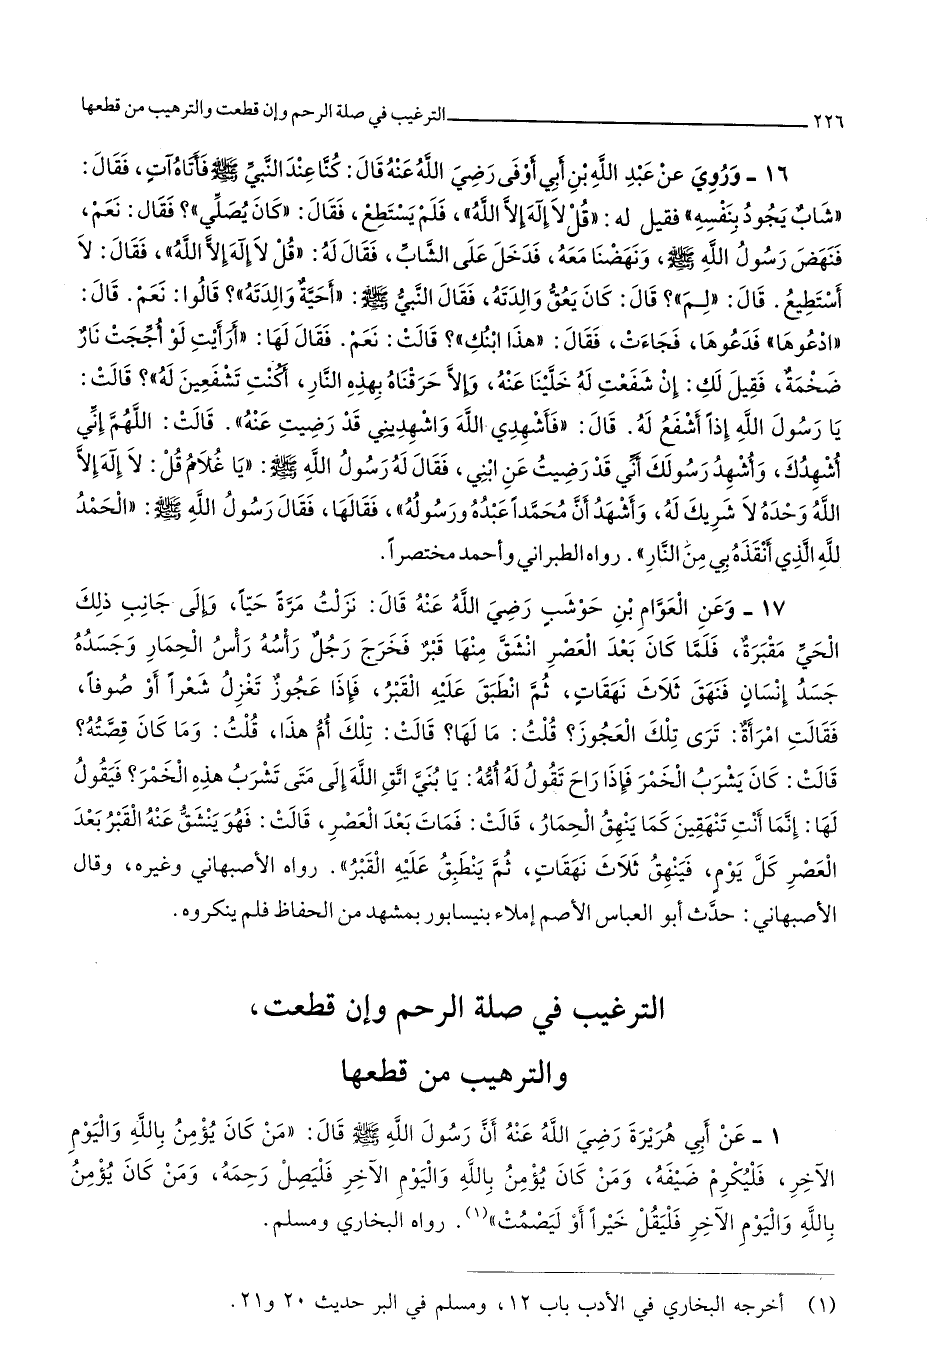 ٢٢٦ ــــــــــــــــ الترغيب في صلة الرحم وإن قطعت والترهيب من قطعها
١٦ ـ وَرُوِيَ عنْ عَبْدِ اللَّهِ بْنِ أَبِي أَوْفَى رَضِيَ اللَّهُ عَنْهُ قَالَ: كُنَّا عِنْدَ النَّبِيِّ ﷺ فَأَتَاهُ آتٍ، فَقَالَ:
«شَابٌ يَجُودُ بِنَفْسِهِ» فقيل له: «قُلْ لاَ إِلَهَ إِلاَّ اللَّهُ»، فَلَمْ يَسْتَطِعْ، فَقَالَ: «كَانَ يُصَلِّي»؟ فَقَالَ: نَعَمْ،
فَنَهَضَ رَسُولُ اللَّهِ ﷺ، وَنَهَضْنَا مَعَهُ، فَدَخَلَ عَلَى الشَّابِّ، فَقَالَ لَهُ: «قُلْ لاَ إِلَهَ إِلاَّ اللَّهُ»، فَقَالَ: لاَ
أَسْتَطِيعُ. قَالَ: «لِمَ»؟ قَالَ: كَانَ يَعُقُّ وَالِدَتَهُ، فَقَالَ النَّبِيُّ ﷺ: «أَحَيَّةٌ وَالِدَتَهُ»؟ قَالُوا: نَعَمْ. قَالَ:
«ادْعُوهَا» فَدَعُوهَا، فَجَاءَتْ، فَقَالَ: «هذَا ابْنُكِ»؟ قَالَتْ: نَعَمْ. فَقَالَ لَهَا: «أَرَأَيْتِ لَوْ أُجِّجَتْ نَارٌ
ضَخْمَةٌ، فَقِيلَ لَكِ: إِنْ شَفَعْتِ لَهُ خَلَّيْنَا عَنْهُ، وَإِلاَّ حَرَقْنَاهُ بِهذِهِ النَّارِ، أَكُنْتِ تَشْفَعِينَ لَهُ»؟ قَالَتْ:
يَا رَسُولَ اللَّهِ إِذاً أَشْفَعُ لَهُ. قَالَ: «فَأَشْهِدِي اللَّهَ وَاشْهِدِينِي قَدْ رَضِيتِ عَنْهُ». قَالَتْ: اللَّهُمَّ إِنِّي
أُشْهِدُكَ، وَأُشْهِدُ رَسُولَكَ أَنِّي قَدْ رَضِيتُ عَنِ ابْنِي، فَقَالَ لَهُ رَسُولُ اللَّهِ ﷺ: «يَا غُلَامُ قُلْ: لاَ إِلَهَ إِلاَّ
اللَّهُ وَحْدَهُ لاَ شَرِيكَ لَهُ، وَأَشْهَدُ أَنَّ مُحَمَّداً عَبْدُهُ ورَسُولُهُ»، فَقَالَهَا، فَقَالَ رَسُولُ اللَّهِ ﷺ: «الْحَمْدُ
للَّهِ الَّذِي أَنْقَذَهُ بِي مِنَ النَّارِ». رواه الطبراني وأحمد مختصراً.
١٧ ـ وَعَنِ الْعَوَّامِ بْنِ حَوْشَبٍ رَضِيَ اللَّهُ عَنْهُ قَالَ: نَزَلْتُ مَرَّةً حَيّاً، وَإِلَى جَانِبِ ذلِكَ
الْحَيِّ مَقْبَرَةٌ، فَلَمَّا كَانَ بَعْدَ الْعَصْرِ انْشَقَّ مِنْهَا قَبْرٌ فَخَرَجَ رَجُلٌ رَأْسُهُ رَأْسُ الْحِمَارِ وَجَسَدُهُ
جَسَدُ إِنْسَانٍ فَنَهَقَ ثَلَاثَ نَهَقَاتٍ، ثُمَّ انْطَبَقَ عَلَيْهِ الْقَبْرُ، فَإِذَا عَجُوزٌ تَغْزِلُ شَعْراً أَوْ صُوفاً،
فَقَالَتِ امْرَأَةٌ: تَرَى تِلْكَ الْعَجُوزَ؟ قُلْتُ: مَا لَهَا؟ قَالَتْ: تِلْكَ أُمُّ هذَا، قُلْتُ: وَمَا كَانَ قِصَّتُهُ؟
قَالَتْ: كَانَ يَشْرَبُ الْخَمْرَ فَإِذَا رَاحَ تَقُولُ لَهُ أُمُّهُ: يَا بُنَيَّ اتَّقِ اللَّهَ إِلَى مَتَى تَشْرَبُ هذِهِ الْخَمْرَ؟ فَيَقُولُ
لَهَا: إِنَّمَا أَنْتِ تَنْهَقِينَ كَمَا يَنْهِقُ الْحِمَارُ، قَالَتْ: فَمَاتَ بَعْدَ الْعَصْرِ، قَالَتْ: فَهُوَ يَنْشَقُّ عَنْهُ الْقَبْرُ بَعْدَ
الْعَصْرِ كَلَّ يَوْمٍ، فَيَنْهِقُ ثَلَاثَ نَهَقَاتٍ، ثُمَّ يَنْطَبِقُ عَلَيْهِ الْقَبْرُ». رواه الأصبهاني وغيره، وقال
الأصبهاني: حدَّث أبو العباس الأصم إملاء بنيسابور بمشهد من الحفاظ فلم ينكروه.
الترغيب في صلة الرحم وإن قطعت،
والترهيب من قطعها
١ ـ عَنْ أَبِي هُرَيْرَةَ رَضِيَ اللَّهُ عَنْهُ أَنَّ رَسُولَ اللَّهِ ﷺ قَالَ: «مَنْ كَانَ يُؤْمِنُ بِاللَّهِ وَالْيَوْمِ
الآخِرِ، فَلْيُكْرِمْ ضَيْفَهُ، وَمَنْ كَانَ يُؤْمِنُ بِاللَّهِ وَالْيَوْمِ الآخِرِ فَلْيَصِلْ رَحِمَهُ، وَمَنْ كَانَ يُؤْمِنُ
بِاللَّهِ وَالْيَوْمِ الآخِرِ فَلْيَقُلْ خَيْراً أَوْ لَيَصْمُتْ»(١). رواه البخاري ومسلم.
(١) أخرجه البخاري في الأدب باب ١٢، ومسلم في البر حديث ٢٠ و٢١.